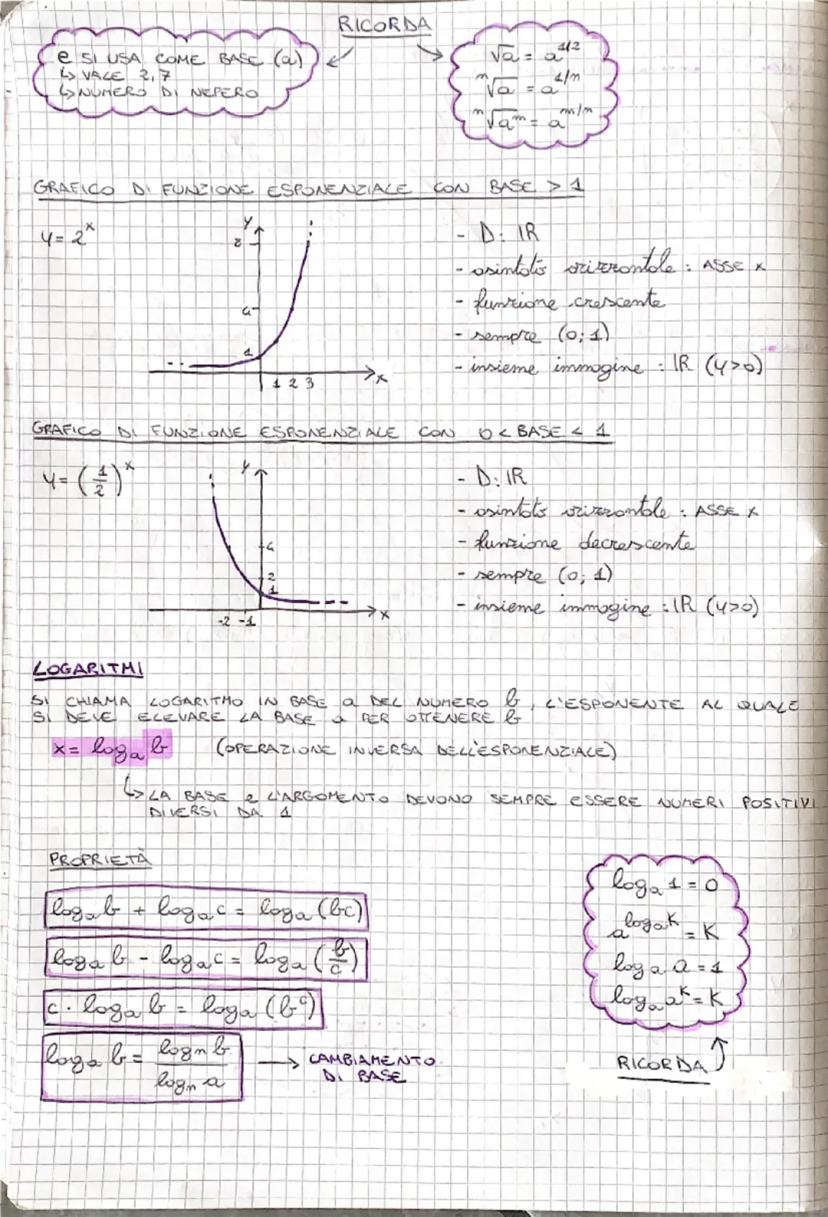 RICORDA
e SI USA COME BASE (a)
↳ VALE 2,7
↳ NUMERO DI NEPERO
√a = a^1/2
ⁿ√a = a^1/n
ⁿ√a^m = a^m/n
GRAFICO DI FUNZIONE ESPONENZIALE CON BASE > 1
y = 2^x
y
8
4
1
1 2 3
x
- D: IR
- asintoto orizzontale : ASSE x
- funzione crescente
- sempre (0; 1)
- insieme immagine : IR (y>0)
GRAFICO DI FUNZIONE ESPONENZIALE CON 0 < BASE < 1
y = (1/2)^x
y
4
2
1
-2 -1
x
- D: IR
- asintoto orizzontale : ASSE x
- funzione decrescente
- sempre (0; 1)
- insieme immagine : IR (y>0)
LOGARITMI
SI CHIAMA LOGARITMO IN BASE a DEL NUMERO b, L'ESPONENTE AL QUALE
SI DEVE ELEVARE LA BASE a PER OTTENERE b
x = logₐ b (OPERAZIONE INVERSA DELL'ESPONENZIALE)
↳ LA BASE e L'ARGOMENTO DEVONO SEMPRE ESSERE NUMERI POSITIVI
DIVERSI DA 1
PROPRIETÀ
logₐ b + logₐ c = logₐ (bc)
logₐ b - logₐ c = logₐ (b/c)
c · logₐ b = logₐ (b^c)
logₐ b = logₙ b / logₙ a → CAMBIAMENTO
DI BASE
logₐ 1 = 0
a^logₐk = K
logₐ a = 1
logₐ a^k = K
RICORDA